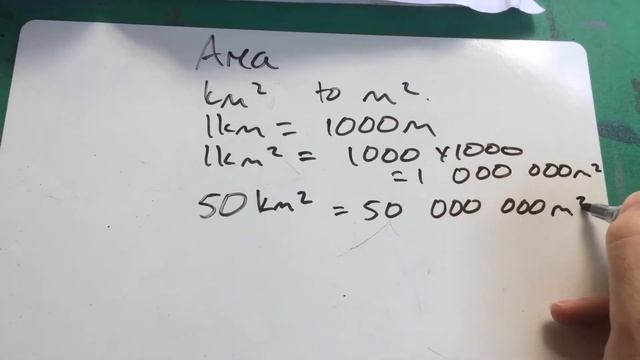 Area
km² to m².
1km = 1000m
1km² = 1000 × 1000
= 1 000 000m²
50km² = 50 000 000m²